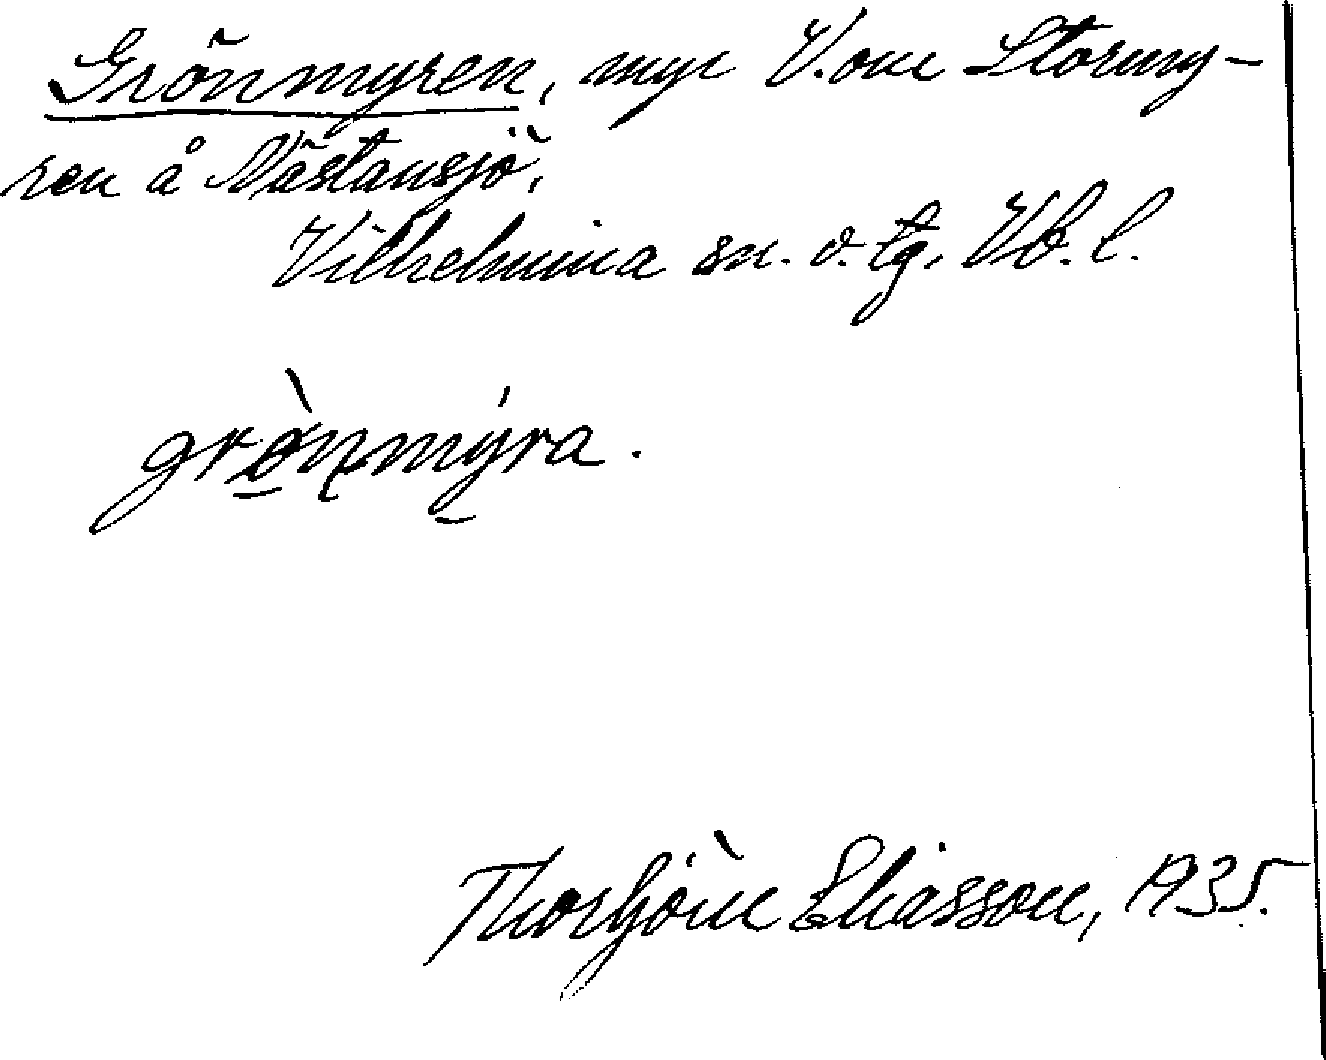 Grönmyren, myr V. om Stormy-
ren å Nästansjö,
Vilhelmina sn. o. tg. Vb. l.
grø̀nmýra.
Thorbjörn Eliasson, 1935.